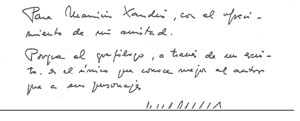 Para Mauricio Xandró, con el ofreci-
miento de mi amistad.
Porque el grafólogo, a través de un escri-
to, es el único que conoce mejor al autor
que a sus personajes